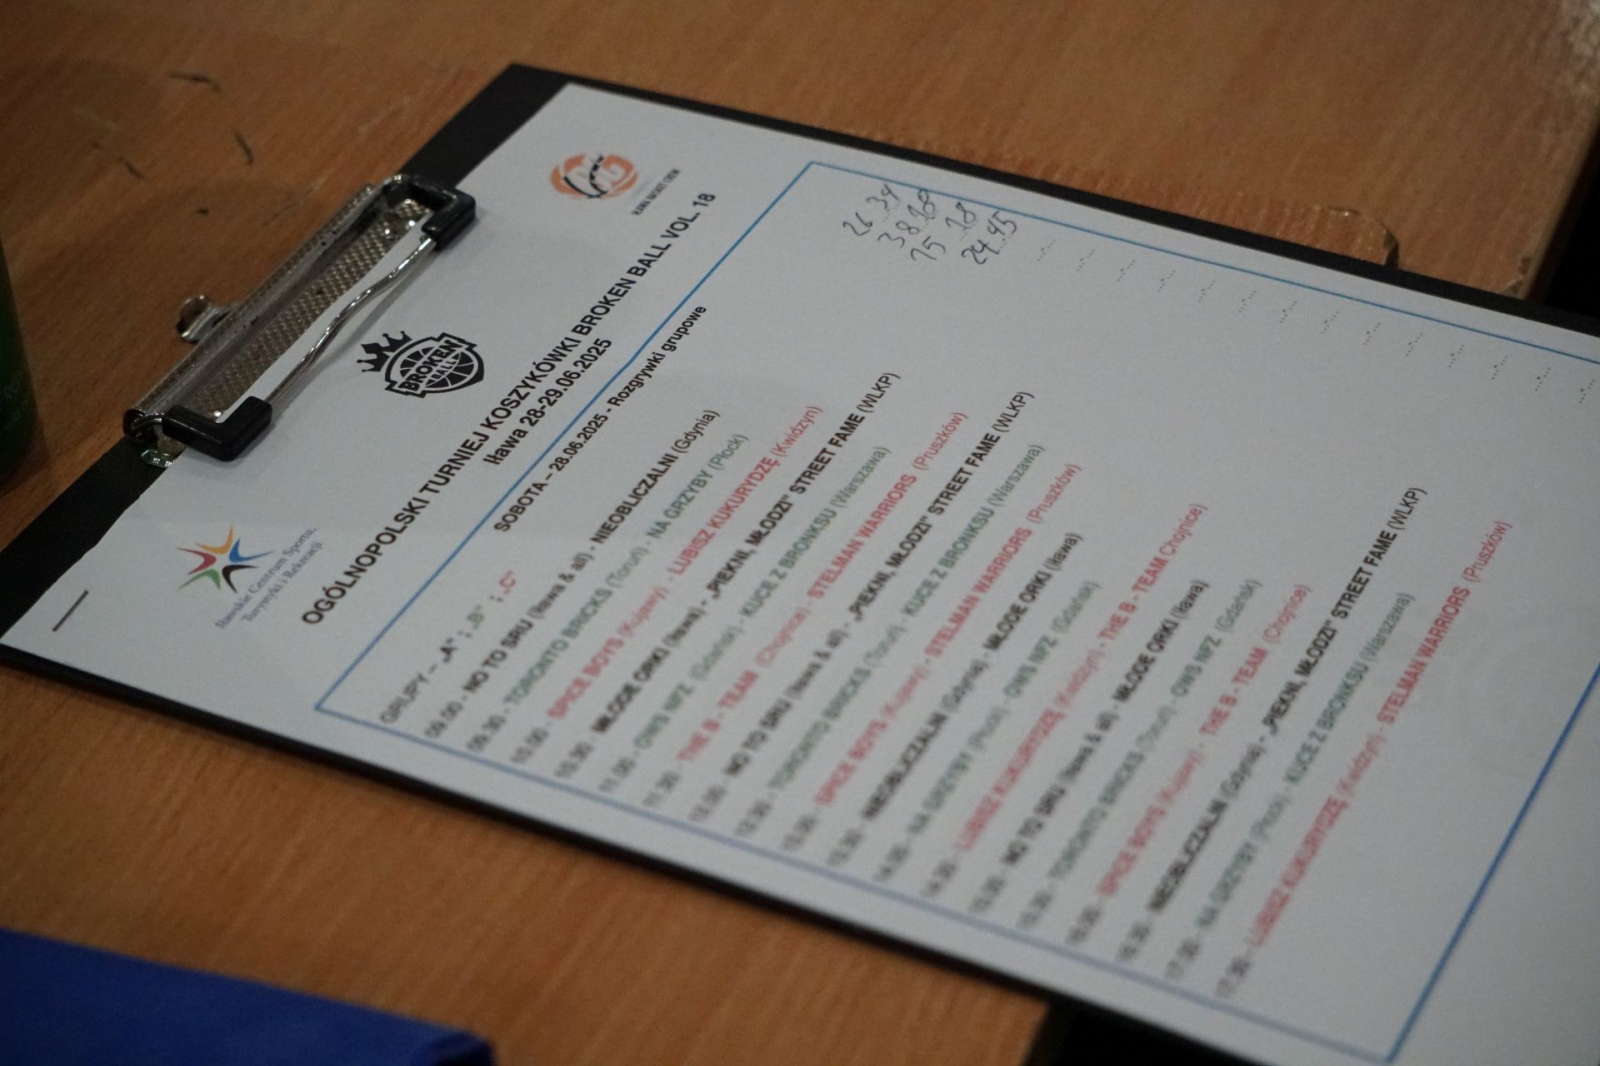 Iławskie Centrum Sportu,
Turystyki i Rekreacji
BROKEN
BALL
IŁAWA BASKET CREW
OGÓLNOPOLSKI TURNIEJ KOSZYKÓWKI BROKEN BALL VOL. 18
Iława 28-29.06.2025
SOBOTA – 28.06.2025 - Rozgrywki grupowe
GRUPY – „A" ; „B" ; „C"
09.00 - NO TO SRU (Iława & all) - NIEOBLICZALNI (Gdynia) 26 34
09.30 - TORONTO BRICKS (Toruń) - NA GRZYBY (Płock) 38
10.00 - SPICE BOYS (Kujawy) - LUBISZ KUKURYDZĘ (Kwidzyn) 15 18
10.30 - MŁODE ORKI (Iława) - „PIĘKNI, MŁODZI" STREET FAME (WLKP) 24 45
11.00 - OWS NFZ (Gdańsk) - KUCE Z BRONKSU (Warszawa)
11.30 - THE B - TEAM (Chojnice) - STELMAN WARRIORS (Pruszków)
12.00 - NO TO SRU (Iława & all) - „PIĘKNI, MŁODZI" STREET FAME (WLKP)
12.30 - TORONTO BRICKS (Toruń) - KUCE Z BRONKSU (Warszawa)
13.00 - SPICE BOYS (Kujawy) - STELMAN WARRIORS (Pruszków)
13.30 - NIEOBLICZALNI (Gdynia) - MŁODE ORKI (Iława)
14.00 - NA GRZYBY (Płock) - OWS NFZ (Gdańsk)
14.30 - LUBISZ KUKURYDZĘ (Kwidzyn) - THE B - TEAM Chojnice)
15.00 - NO TO SRU (Iława & all) - MŁODE ORKI (Iława)
15.30 - TORONTO BRICKS (Toruń) - OWS NFZ (Gdańsk)
16.00 - SPICE BOYS (Kujawy) - THE B - TEAM (Chojnice)
16.30 - NIEOBLICZALNI (Gdynia) - „PIĘKNI, MŁODZI" STREET FAME (WLKP)
17.00 - NA GRZYBY (Płock) - KUCE Z BRONKSU (Warszawa)
17.30 - LUBISZ KUKURYDZĘ (Kwidzyn) - STELMAN WARRIORS (Pruszków)